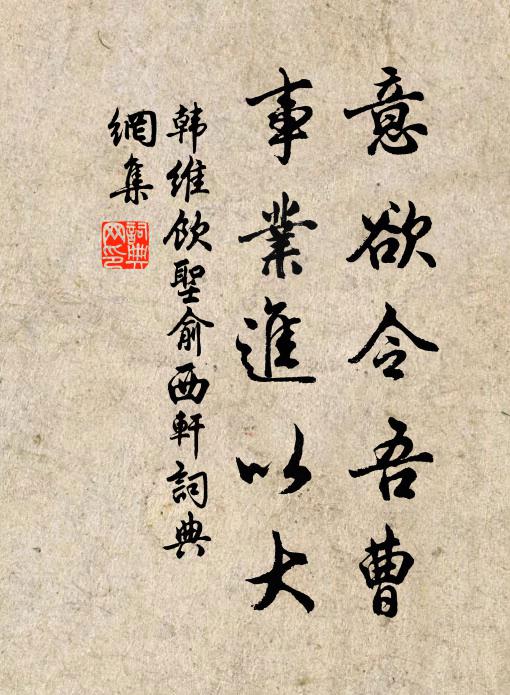 意欲令吾曹
事業進以大
韩维饮聖俞西軒詞典
網集
詞典網印